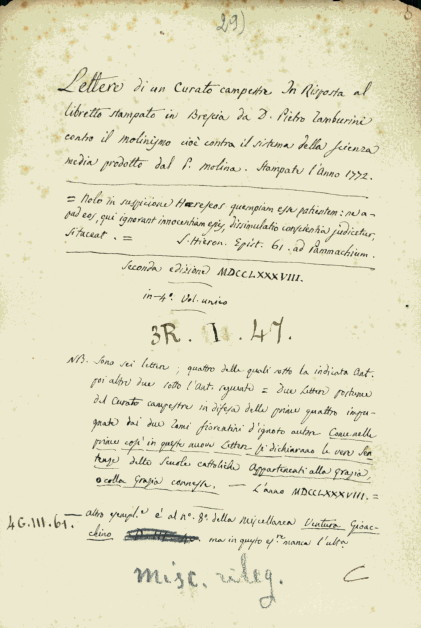 29)
Lettere di un Curato campestre In Risposta al
libretto stampato in Brescia da D. Pietro Tamburini
contro il molinismo cioè contro il sistema della scienza
media prodotto dal P. Molina. Stampate l'Anno 1772.
= Nolo in suspicione Hæreseos quempiam esse patientem: ne a-
pad eos, qui ignorant innocentiam ejus, dissimulatio conscientia judicetur,
si taceat. = S. Hieron. Epist. 61. ad Pammachium.
Seconda edizione MDCCLXXXVIII.
in-4º. Vol. unico
3R. I. 47.
NB. Sono sei lettere, quattro delle quali sotto la indicata Ant.
poi altre due sotto l'Ant. seguente = Due Lettere postume
del Curato campestre in difesa delle prime quattro impu-
gnate dai due Zami fiorentini d'ignoto autore Come nelle
prime così in queste nuove Lettere si dichiarano le vere Sen-
tenze delle Scuole cattoliche Appartenenti alla Grazia,
o colla Grazia connesse. — L'anno MDCCLXXXVIII. =
4G.III.61.— altro esempl.e è al nº. 8º. della Miscellanea Ventura Gioac-
chino ma in questo manca l'ulta.
Misc. rileg.
C